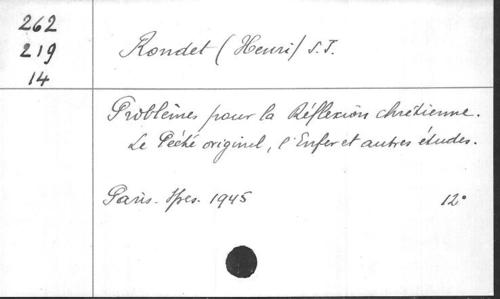 262
219
14
Rondet (Henri) S.J.
Problèmes pour la Réflexion chrétienne.
Le Péché originel, l'Enfer et autres études.
Paris. Spes. 1945 12°